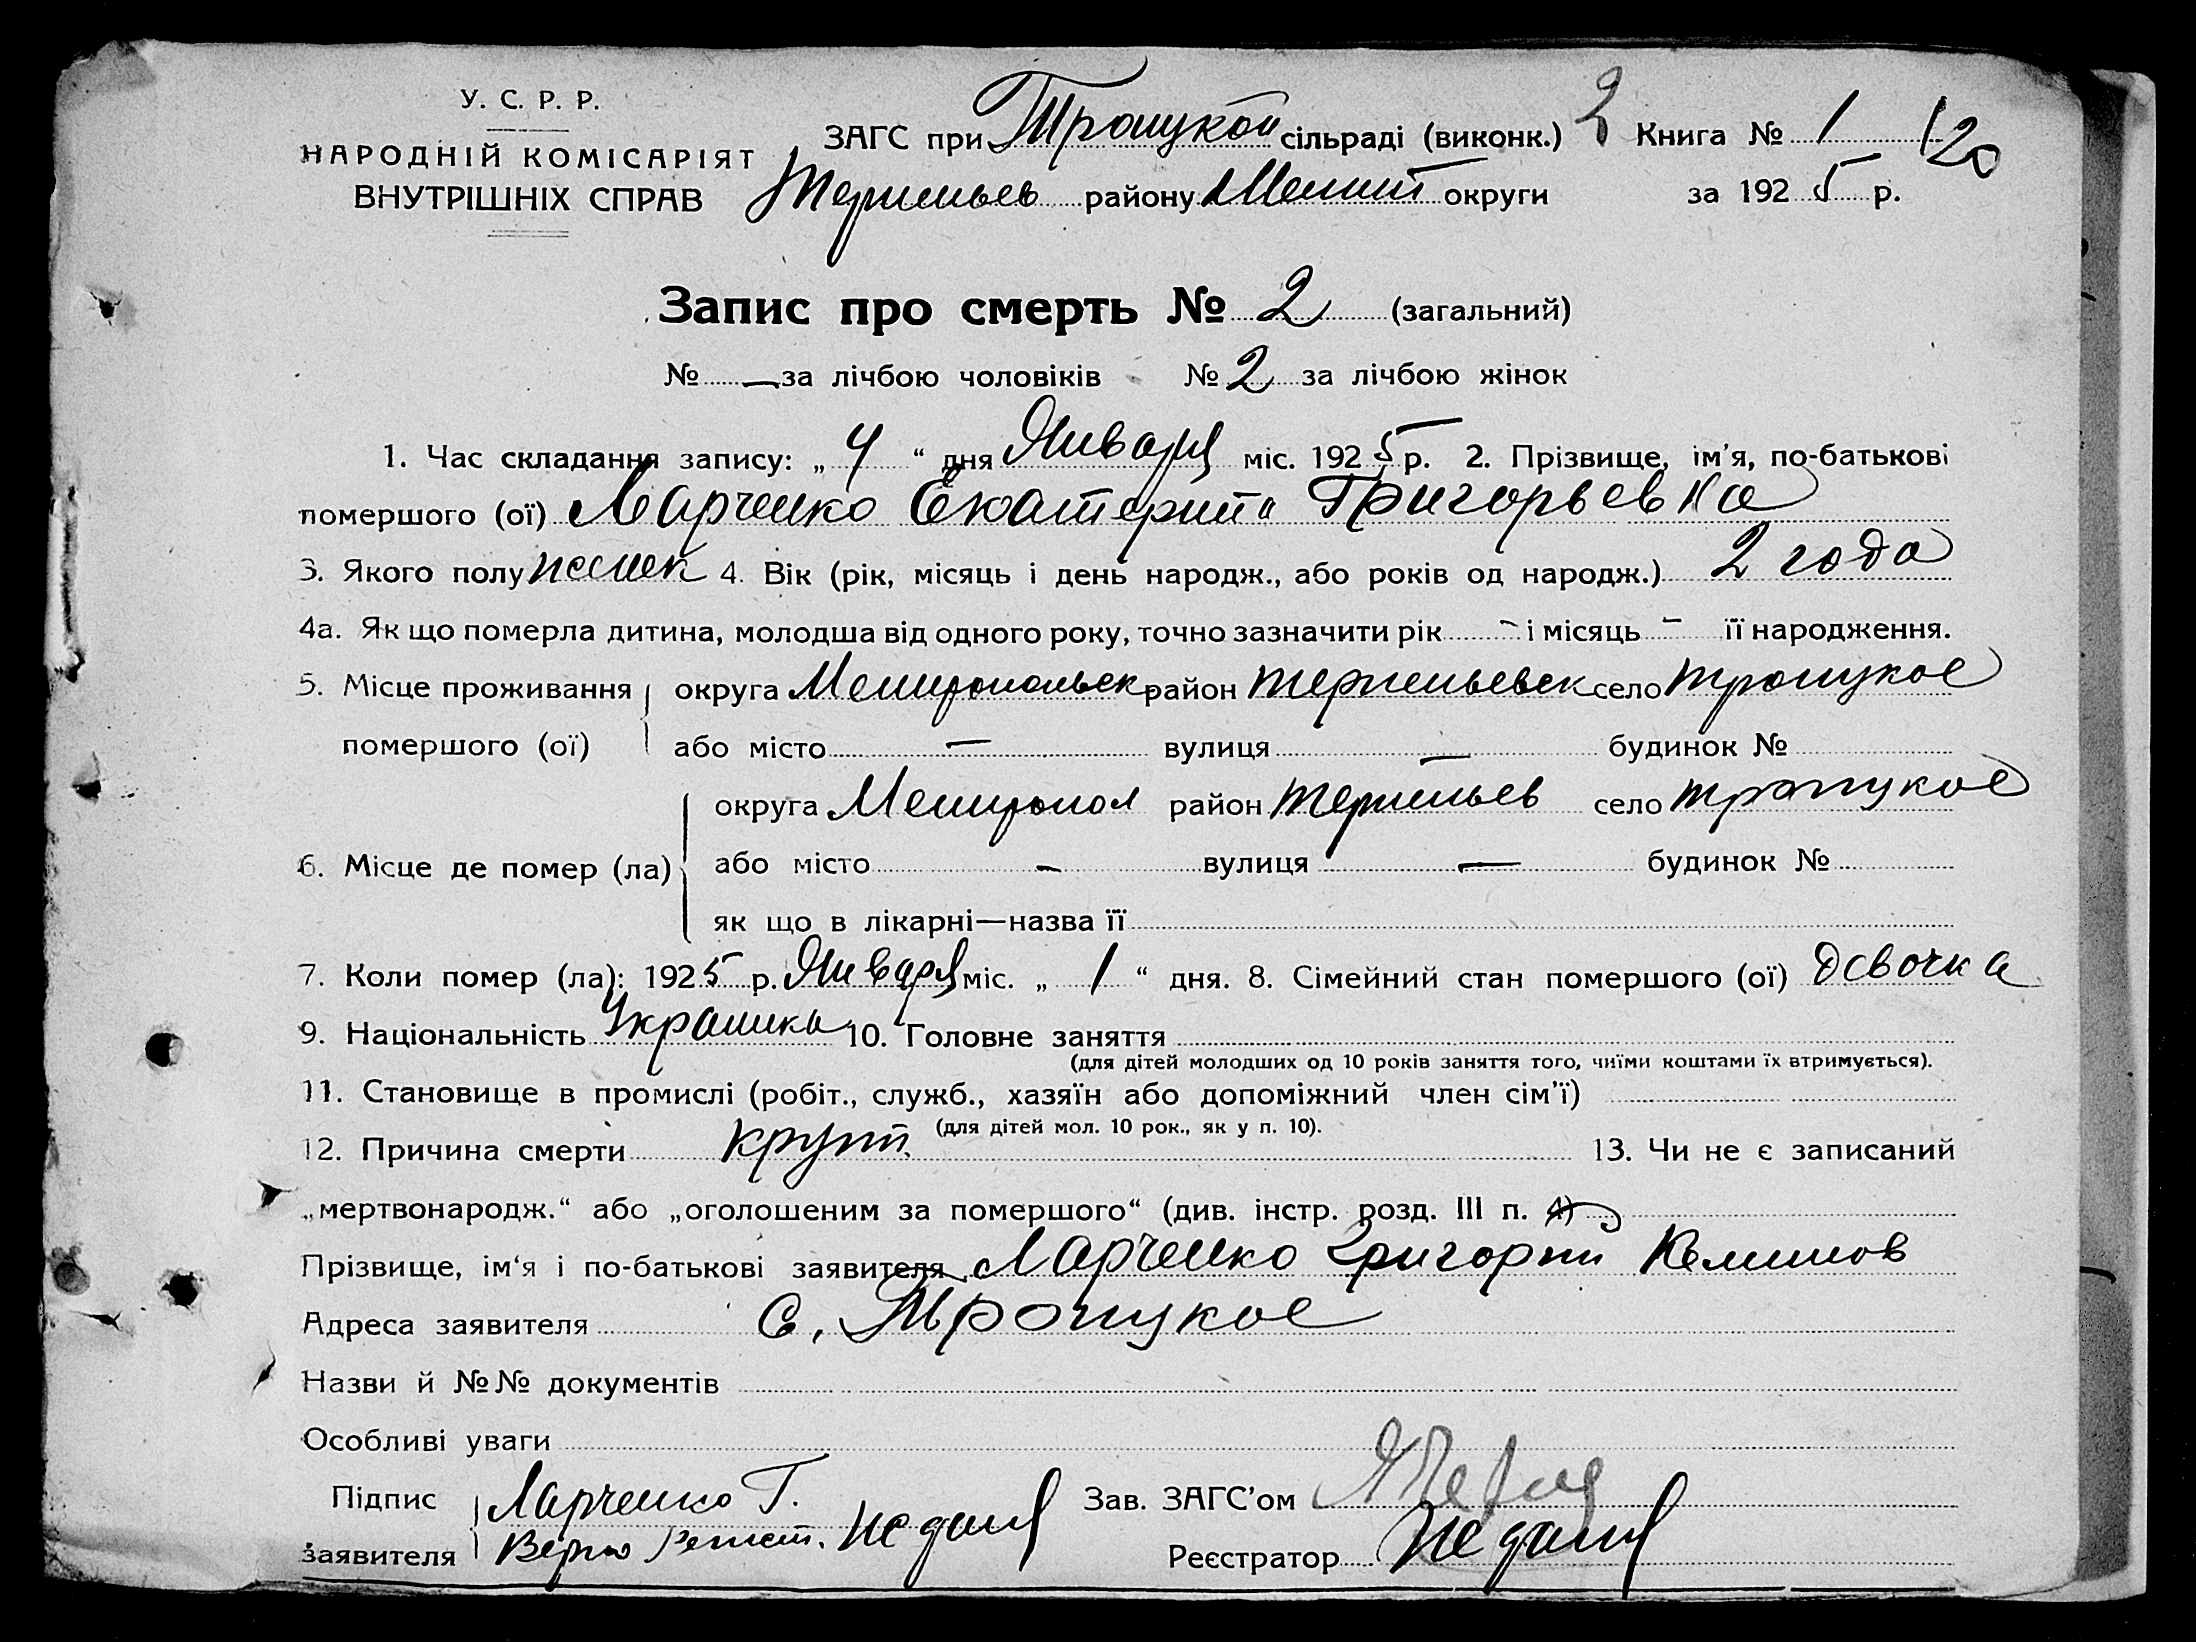 У. С. Р. Р.
НАРОДНІЙ КОМІСАРІЯТ
ВНУТРІШНІХ СПРАВ
ЗАГС при Троицкой сільраді (виконк.) 2 Книга № 1 120
Терпеньев району Мелит округи за 1925 р.
Запис про смерть № 2 (загальний)
№ — за лічбою чоловіків № 2 за лічбою жінок
1. Час складання запису: „ 4 “ дня Января міс. 1925 р. 2. Прізвище, ім'я, по-батькові
помершого (ої) Марченко Екатерина Григорьевна
3. Якого полу женск 4. Вік (рік, місяць і день народж., або років од народж.) 2 года
4а. Як що померла дитина, молодша від одного року, точно зазначити рік - і місяць - її народження.
5. Місце проживання помершого (ої) округа Мелитопольск район Терпеньевск село Троицкое
або місто — вулиця — будинок №
6. Місце де помер (ла) округа Мелитопол район Терпеньев село Троицкое
або місто - вулиця — будинок №
як що в лікарні—назва її
7. Коли помер (ла): 1925 р. Января міс. „ 1 “ дня. 8. Сімейний стан помершого (ої) девочка
9. Національність Украинка 10. Головне заняття
(для дітей молодших од 10 років заняття того, чиїми коштами їх втримується).
11. Становище в промислі (робіт., служб., хазяїн або допоміжний член сім'ї)
(для дітей мол. 10 рок., як у п. 10).
12. Причина смерти круп. 13. Чи не є записаний
„мертвонародж.“ або „оголошеним за помершого“ (див. інстр. розд. III п. 4)
Прізвище, ім'я і по-батькові заявителя Марченко Григорий
Адреса заявителя с. Троицкое
Назви й №№ документів
Особливі уваги
Підпис заявителя Марченко Г.
Верно
Зав. ЗАГС'ом
Реєстратор